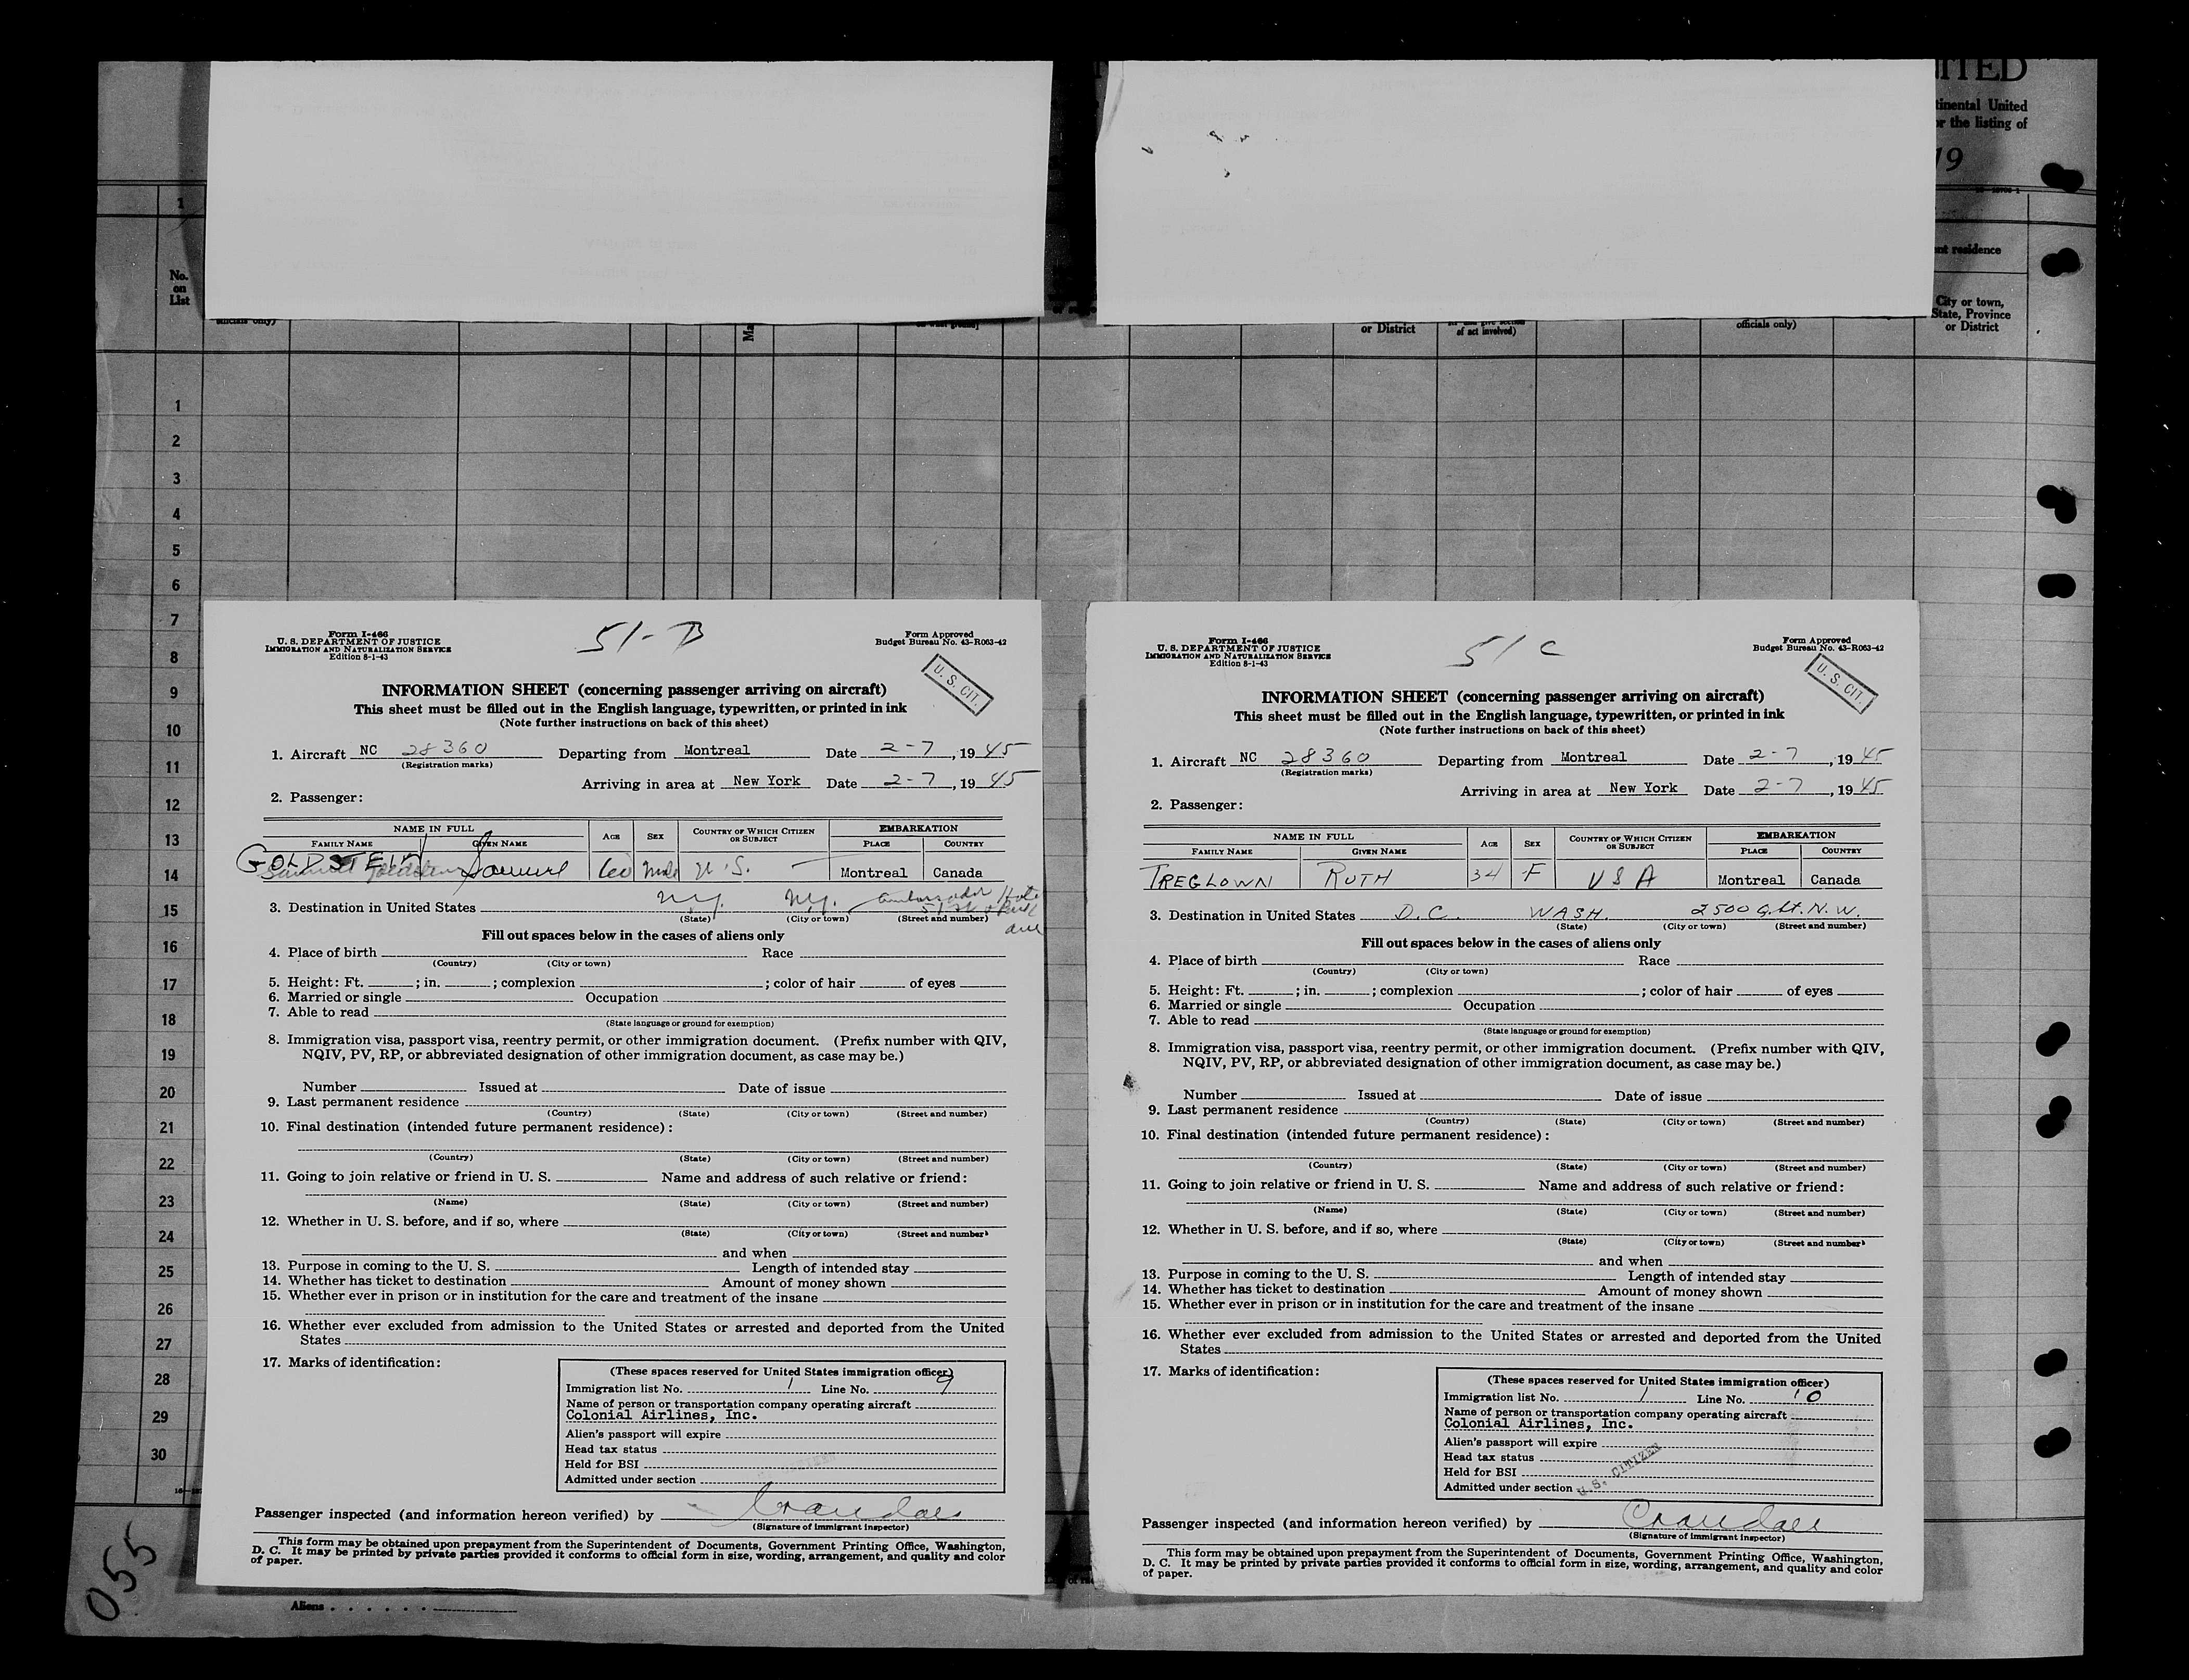 ITED
tinental United
or the listing of
19
1
No.
on
List
officials only)
or District
of act involved)
officials only)
ent residence
City or town,
State, Province
or District
1
2
3
4
5
6
7
8
9
10
11
12
13
14
15
16
17
18
19
20
21
22
23
24
25
26
27
28
29
30
055
Aliens
Form I-466
U. S. DEPARTMENT OF JUSTICE
IMMIGRATION AND NATURALIZATION SERVICE
Edition 8-1-43
51-B
Form Approved
Budget Bureau No. 43-R063-42
U. S. CIT.
INFORMATION SHEET (concerning passenger arriving on aircraft)
This sheet must be filled out in the English language, typewritten, or printed in ink
(Note further instructions on back of this sheet)
1. Aircraft NC 28360 Departing from Montreal Date 2-7, 1945
(Registration marks)
Arriving in area at New York Date 2-7, 1945
2. Passenger:
NAME IN FULL AGE SEX COUNTRY OF WHICH CITIZEN OR SUBJECT EMBARKATION
FAMILY NAME GIVEN NAME PLACE COUNTRY
GOLDSTEIN Samuel 60 Male U.S. Montreal Canada
3. Destination in United States N.Y. N.Y. Ambassador Hotel 51 St & Park Ave
(State) (City or town) (Street and number)
Fill out spaces below in the cases of aliens only
4. Place of birth Race
(Country) (City or town)
5. Height: Ft. ; in. ; complexion ; color of hair of eyes
6. Married or single Occupation
7. Able to read
(State language or ground for exemption)
8. Immigration visa, passport visa, reentry permit, or other immigration document. (Prefix number with QIV,
NQIV, PV, RP, or abbreviated designation of other immigration document, as case may be.)
Number Issued at Date of issue
9. Last permanent residence
(Country) (State) (City or town) (Street and number)
10. Final destination (intended future permanent residence):
(Country) (State) (City or town) (Street and number)
11. Going to join relative or friend in U. S. Name and address of such relative or friend:
(Name) (State) (City or town) (Street and number)
12. Whether in U. S. before, and if so, where
(State) (City or town) (Street and number)
and when
13. Purpose in coming to the U. S. Length of intended stay
14. Whether has ticket to destination Amount of money shown
15. Whether ever in prison or in institution for the care and treatment of the insane
16. Whether ever excluded from admission to the United States or arrested and deported from the United
States
17. Marks of identification:
(These spaces reserved for United States immigration officer)
Immigration list No. 1 Line No. 9
Name of person or transportation company operating aircraft
Colonial Airlines, Inc.
Alien's passport will expire
Head tax status
Held for BSI
Admitted under section
Passenger inspected (and information hereon verified) by Crandall
(Signature of immigrant inspector)
This form may be obtained upon prepayment from the Superintendent of Documents, Government Printing Office, Washington,
D. C. It may be printed by private parties provided it conforms to official form in size, wording, arrangement, and quality and color
of paper.
Form I-466
U. S. DEPARTMENT OF JUSTICE
IMMIGRATION AND NATURALIZATION SERVICE
Edition 8-1-43
51 C
Form Approved
Budget Bureau No. 43-R063-42
U. S. CIT.
INFORMATION SHEET (concerning passenger arriving on aircraft)
This sheet must be filled out in the English language, typewritten, or printed in ink
(Note further instructions on back of this sheet)
1. Aircraft NC 28360 Departing from Montreal Date 2-7, 1945
(Registration marks)
Arriving in area at New York Date 2-7, 1945
2. Passenger:
NAME IN FULL AGE SEX COUNTRY OF WHICH CITIZEN OR SUBJECT EMBARKATION
FAMILY NAME GIVEN NAME PLACE COUNTRY
TREGLOWN RUTH 34 F USA Montreal Canada
3. Destination in United States D.C. WASH. 2500 Q. St. N.W.
(State) (City or town) (Street and number)
Fill out spaces below in the cases of aliens only
4. Place of birth Race
(Country) (City or town)
5. Height: Ft. ; in. ; complexion ; color of hair of eyes
6. Married or single Occupation
7. Able to read
(State language or ground for exemption)
8. Immigration visa, passport visa, reentry permit, or other immigration document. (Prefix number with QIV,
NQIV, PV, RP, or abbreviated designation of other immigration document, as case may be.)
Number Issued at Date of issue
9. Last permanent residence
(Country) (State) (City or town) (Street and number)
10. Final destination (intended future permanent residence):
(Country) (State) (City or town) (Street and number)
11. Going to join relative or friend in U. S. Name and address of such relative or friend:
(Name) (State) (City or town) (Street and number)
12. Whether in U. S. before, and if so, where
(State) (City or town) (Street and number)
and when
13. Purpose in coming to the U. S. Length of intended stay
14. Whether has ticket to destination Amount of money shown
15. Whether ever in prison or in institution for the care and treatment of the insane
16. Whether ever excluded from admission to the United States or arrested and deported from the United
States
17. Marks of identification:
(These spaces reserved for United States immigration officer)
Immigration list No. 1 Line No. 10
Name of person or transportation company operating aircraft
Colonial Airlines, Inc.
Alien's passport will expire
Head tax status
Held for BSI
Admitted under section U.S. CITIZEN
Passenger inspected (and information hereon verified) by Crandall
(Signature of immigrant inspector)
This form may be obtained upon prepayment from the Superintendent of Documents, Government Printing Office, Washington,
D. C. It may be printed by private parties provided it conforms to official form in size, wording, arrangement, and quality and color
of paper.